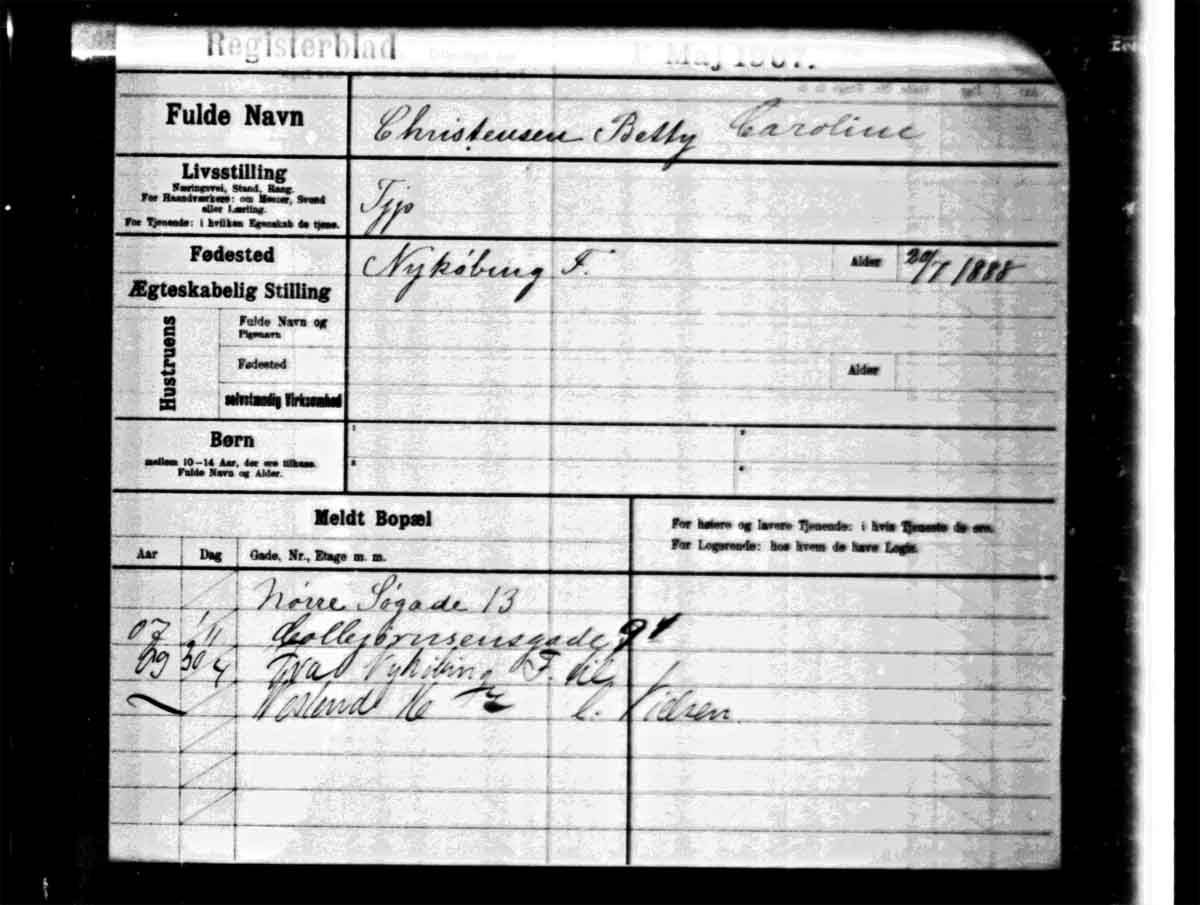 Registerblad Maj 1907.
Fulde Navn Christensen Betty Caroline
Livsstilling
Næringsvei, Stand, Rang.
For Haandværkere: om Mester, Svend
eller Lærling.
For Tjenende: i hvilken Egenskab de tjene.
Tjp
Fødested Nykøbing F. Alder 20/7 1888
Ægteskabelig Stilling
Hustruens
Fulde Navn og
Pigenavn
Fødested Alder
selvstændig Virksomhed
Børn
mellem 10-14 Aar, der ere tilhuse.
Fulde Navn og Alder.
Meldt Bopæl
For høiere og lavere Tjenende: i hvis Tjeneste de ere.
For Logerende: hos hvem de have Logis.
Aar Dag Gade, Nr., Etage m. m.
Nørre Søgade 13
07 1/11 Colbjørnsensgade
09 30/4 Fra Nykøbing F. til